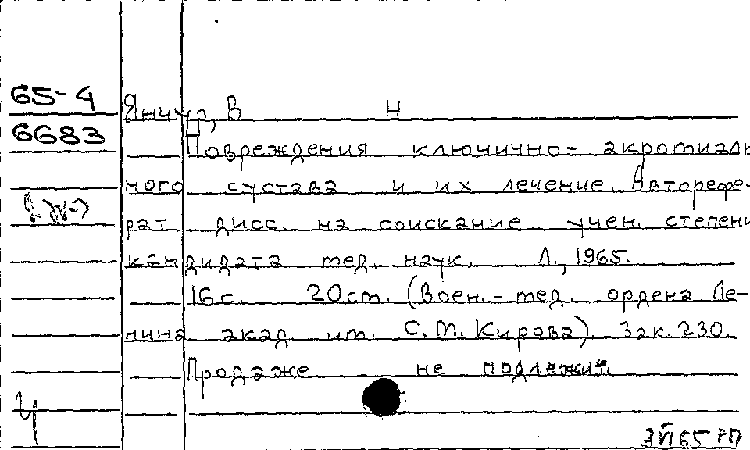 65-4
6683
Янчур, В Н
Повреждения ключично-акромиаль
ного сустава и их лечение. Авторефе-
рат дисс. на соискание учен. степени
кандидата мед. наук. Л., 1965.
16 с. 20 см. (Воен.-мед. ордена Ле-
нина акад. им. С.М. Кирова). Зак. 230.
Продаже не подлежит.
Ч